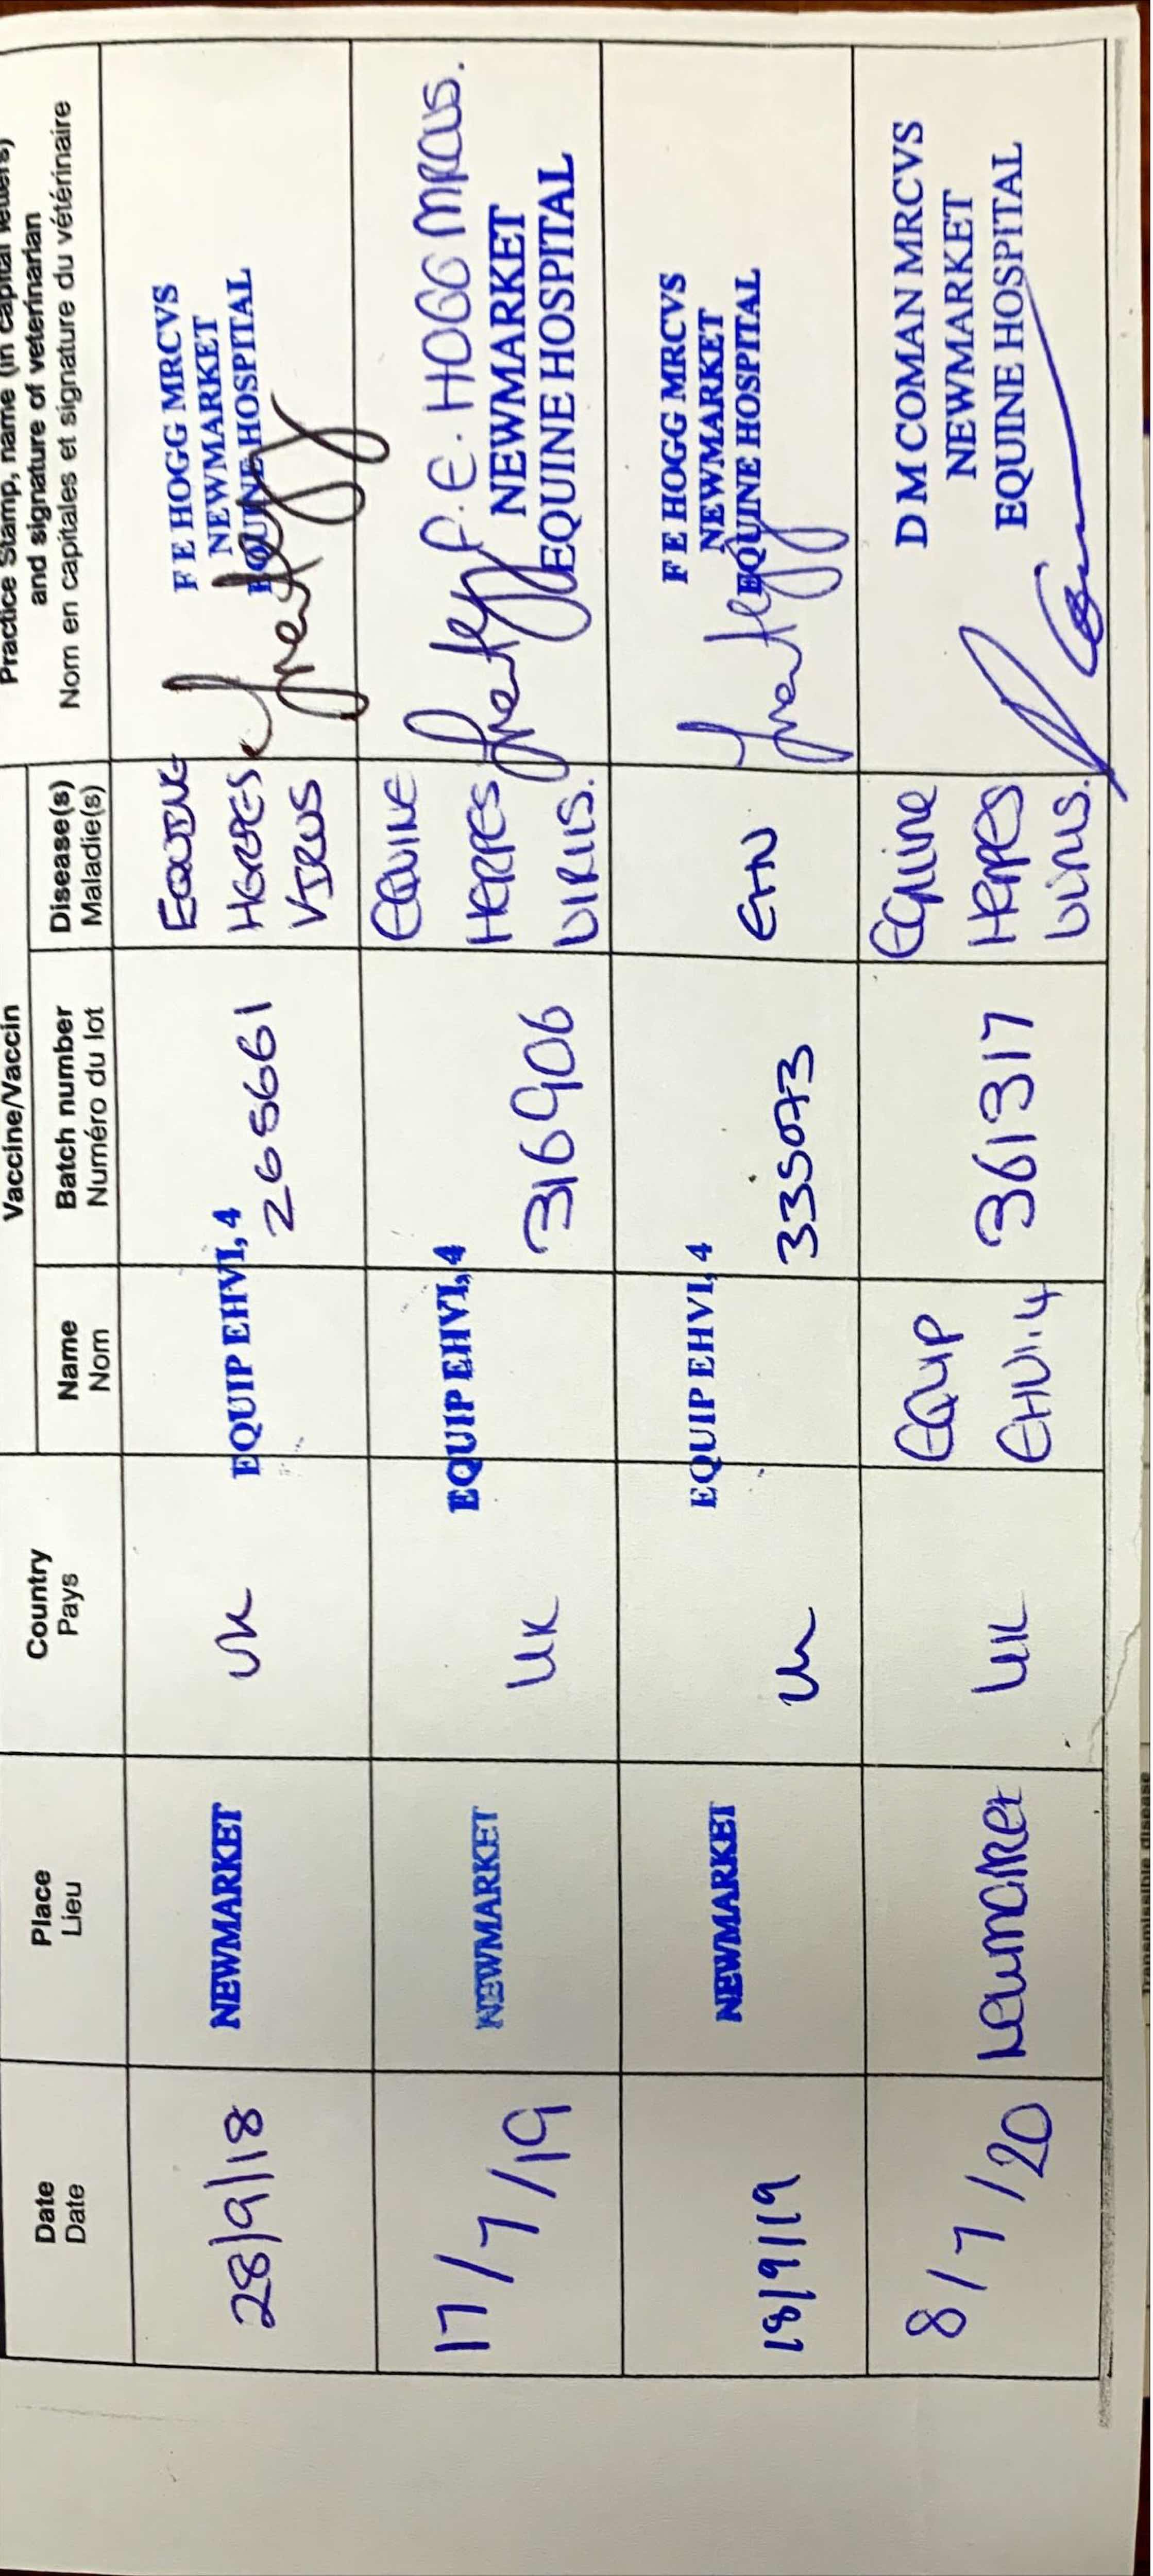 Vaccine/Vaccin
Practice Stamp, name (in capital letters)
and signature of veterinarian
Nom en capitales et signature du vétérinaire
Date
Date
Place
Lieu
Country
Pays
Name
Nom
Batch number
Numéro du lot
Disease(s)
Maladie(s)
28/9/18
NEWMARKET
UK
EQUIP EHV1, 4
265661
EQUINE
HERPES
VIRUS
F E HOGG MRCVS
NEWMARKET
EQUINE HOSPITAL
17/7/19
NEWMARKET
UK
EQUIP EHV1, 4
316906
EQUINE
HERPES
VIRUS.
F.E. HOGG MRCVS.
NEWMARKET
EQUINE HOSPITAL
18/9/19
NEWMARKET
UK
EQUIP EHV1, 4
335073
F E HOGG MRCVS
NEWMARKET
EQUINE HOSPITAL
8/7/20
Newmarket
UK
EQUIP
EHV1.4
361317
Equine
Herpes
Virus.
D M COMAN MRCVS
NEWMARKET
EQUINE HOSPITAL
Transmissible disease